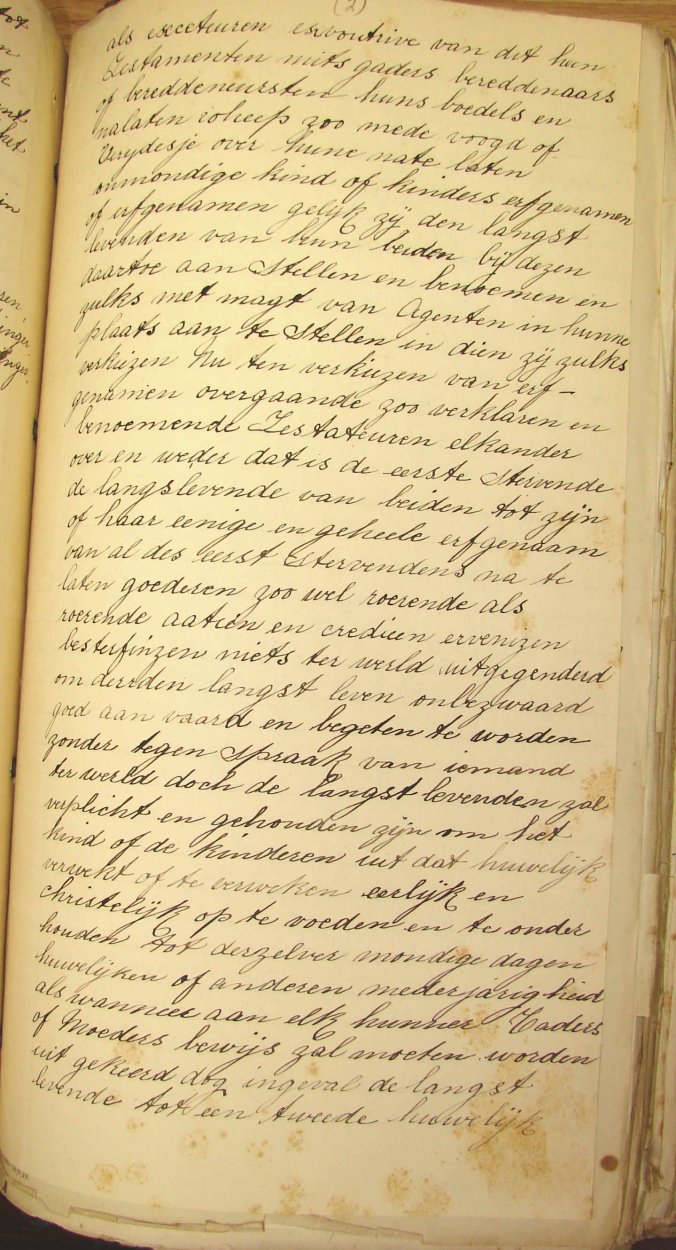 (2)
als execeteuren exvoutrive van dit hun
Testamenten mits gaders bereddenaars
of bereddeneursten huns boedels en
nalaten ioheep zoo mede voogd of
Verydesje over hune nate laten
onmondige kind of kinders erfgenamen
of erfgenamen gelijk zij den langst
levenden van hun beiden bij dezen
daartoe aan Stellen en benoemen en
zulks met magt van Agenten in hunne
plaats aan te Stellen in dien zij zulks
verkiezen Nu ten verkiezen van erf-
genamen overgaande zoo verklaren en
benoemende Testateuren elkander
over en weder dat is de eerste Stervende
de langslevende van beiden tot zijn
of haar eenige en geheele erfgenaam
van al des eerst Stervendens na te
laten goederen zoo wel roerende als
roerende aatien en credieen erveni\zen
bestufinzen niets ter werld uitgegenderd
om dereden langst leven onbezwaard
goed aan vaard en begeten te worden
zonder tegen Spraak van iemand
ter werld doch de langst levenden zal
verplicht en gehouden zijn om het
kind of de kinderen uit dat huwelijk
verwekt of te verweken eerlijk en
christelijk op te voeden en te onder
houden tot derzelver mondige dagen
huwelijken of anderen mederjarigheid
als wanneer aan elk hunner Vaders
of Moeders bewijs zal moeten worden
uit gekeerd dog ingeval de langst
levende tot een tweede huwelijk